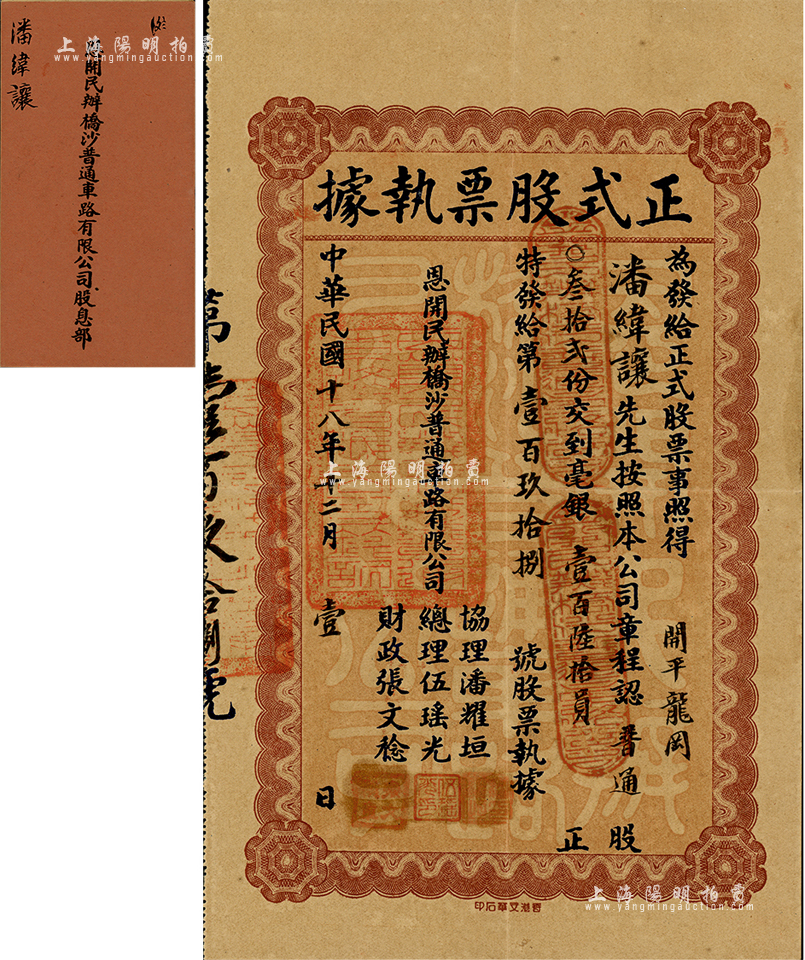 潘緯讓
恩開民辦橋沙普通車路有限公司股息部
正式股票執據
為發給正式股票事照得 開平龍岡
潘緯讓先生按照本公司章程認 普通 股
〇叁拾弍份交到毫銀 壹百陸拾員 正
特發給第 壹百玖拾捌 號股票執據
恩開民辦橋沙普通車路有限公司
協理潘耀垣
總理伍瑤光
財政張文稔
中華民國十八年十二月 壹 日
第壹百玖拾捌號
香港文華石印
上海陽明拍賣
www.yangmingauction.com
上海陽明拍賣
www.yangmingauction.com
上海陽明拍賣
www.yangmingauction.com